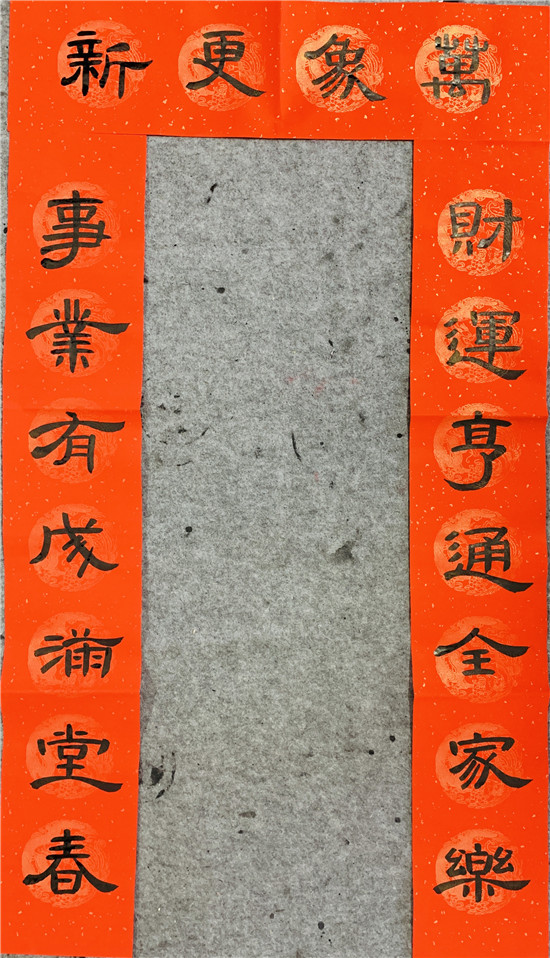 萬象更新
財運亨通全家樂
事業有成滿堂春